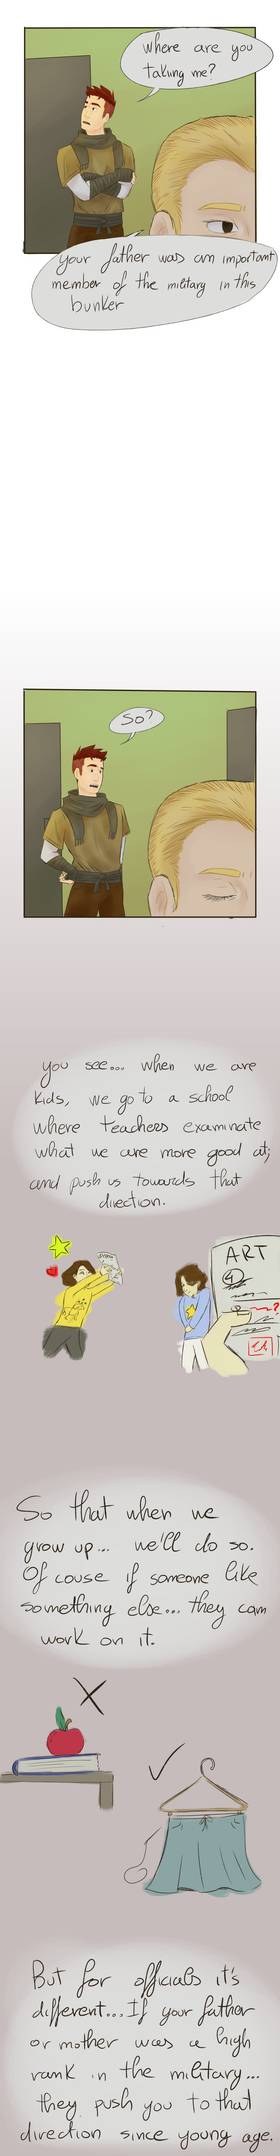 Where are you
taking me?
Your father was an important
member of the military in this
bunker
So?
You see... when we are
kids, we go to a school
where teachers examinate
what we are more good at;
and push us towards that
direction.
ART
So that when we
grow up... we'll do so.
Of couse if someone like
something else... they can
work on it.
But for officials it's
different... If your father
or mother was a high
rank in the military...
they push you to that
direction since young age.